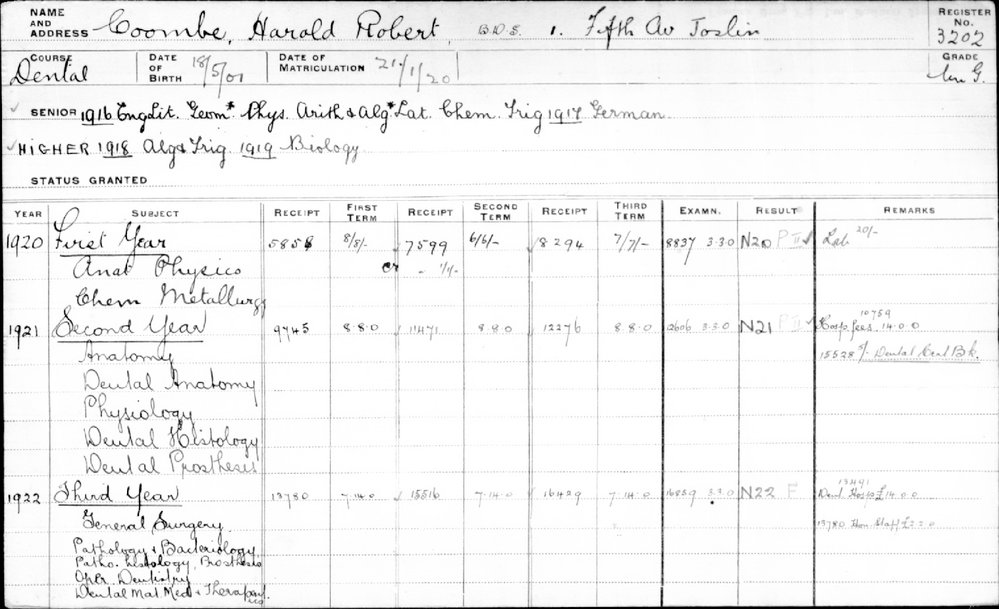 NAME AND ADDRESS Coombe, Harold Robert, B.D.S. 1. Fifth Av Joslin REGISTER No. 3202
COURSE Dental DATE OF BIRTH 18/5/01 DATE OF MATRICULATION 21/1/20 GRADE
SENIOR 1916 Eng Lit. Geom* Phys. Arith & Alg* Lat. Chem. Trig 1917 German
HIGHER 1918 Alg & Trig. 1919 Biology
STATUS GRANTED
YEAR SUBJECT RECEIPT FIRST TERM RECEIPT SECOND TERM RECEIPT THIRD TERM EXAMN. RESULT REMARKS
1920 First Year 5858 8/8/- 7599 6/6/- 8294 7/7/- 8837 3.3.0 N20 P II Lab 20/-
Anat Physics cr - 1/1/-
Chem Metallurgy
1921 Second Year 9745 8.8.0 11471 8.8.0 12276 8.8.0 12606 3.3.0 N21 P II 10759 Hosp fees. 14.0.0
Anatomy 15528 5/- Dental Cent Bk.
Dental Anatomy
Physiology
Dental Histology
Dental Prosthesis
1922 Third Year 13780 7.14.0 15516 7.14.0 16429 7.14.0 16859 3.3.0 N22 F 13491 Dent. Hosp £14.0.0
General Surgery. 13780 Hon Staff
Pathology & Bacteriology
Patho. Histology, Prosthesis
Oper. Dentistry
Dental Mat Med & Therapeutics